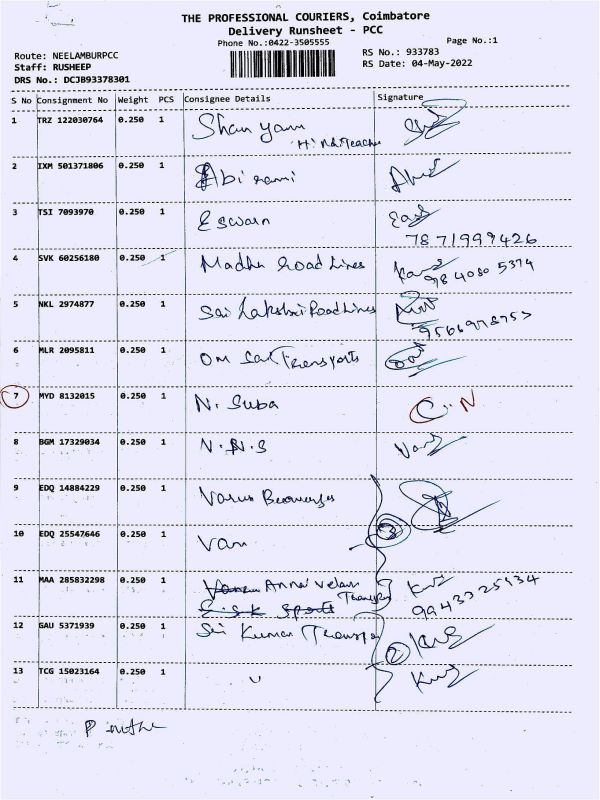 THE PROFESSIONAL COURIERS, Coimbatore
Delivery Runsheet - PCC
Phone No.:0422-3505555
Page No.:1
Route: NEELAMBURPCC
RS No.: 933783
Staff: RUSHEEP
RS Date: 04-May-2022
DRS No.: DCJB93378301
S No Consignment No Weight PCS Consignee Details Signature
1 TRZ 122030764 0.250 1 Shan yam
2 IXM 501371806 0.250 1 Abi rami
3 TSI 7093970 0.250 1 Eswarn
7871999426
4 SVK 60256180 0.250 1 Madhu Road Lines
984080 5374
5 NKL 2974877 0.250 1 Sai Lakshmi Road Lines
6 MLR 2095811 0.250 1 Om Sai Transports
7 MYD 8132015 0.250 1 N. Suba C.N
8 BGM 17329034 0.250 1 N.N.S
9 EDQ 14884229 0.250 1 Varus
3
10 EDQ 25547646 0.250 1 Varu
11 MAA 285832298 0.250 1 Annai Velan
12 GAU 5371939 0.250 1 Sri Kumar Transpo
2
13 TCG 15023164 0.250 1 "